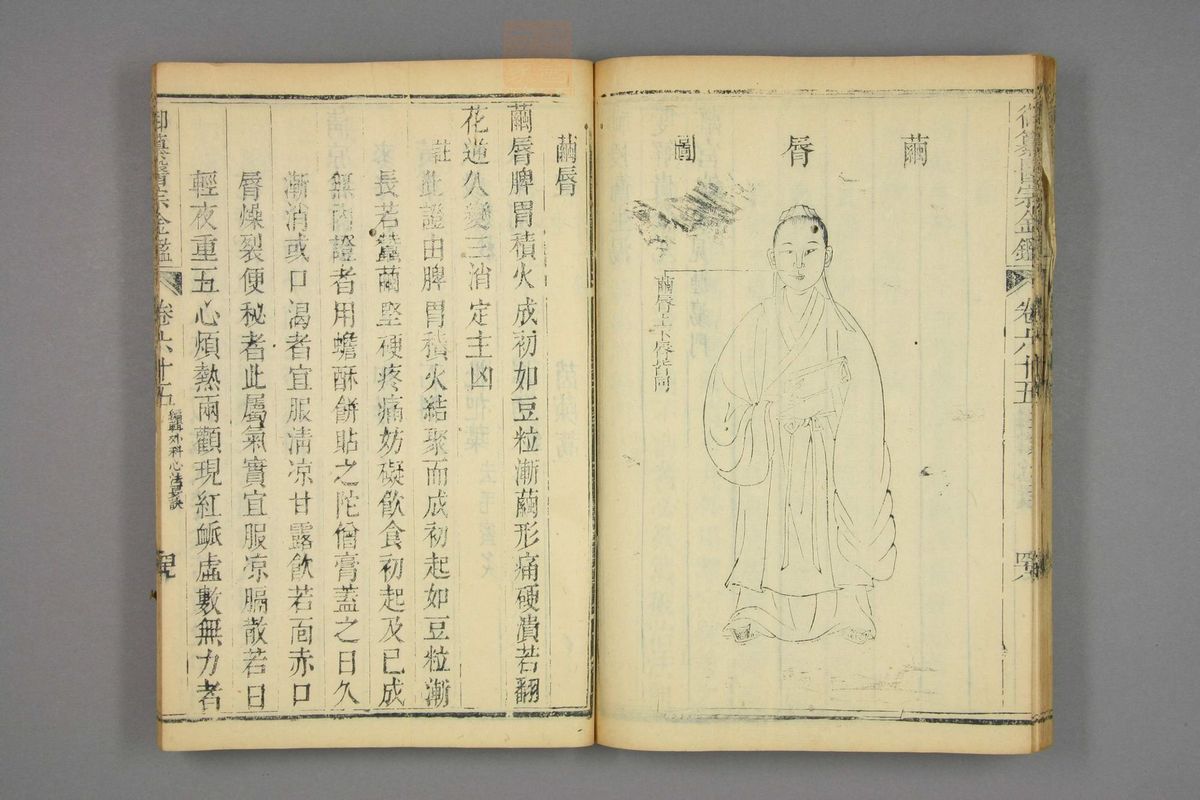 御纂醫宗金鑑 卷六十五 四八
繭脣圖
繭脣上下脣皆同
繭脣
繭脣脾胃積火成初如豆粒漸繭形痛硬潰若翻
花逆久變三消定主凶
註此證由脾胃積火結聚而成初起如豆粒漸
長若蠶繭堅硬疼痛妨礙飲食初起及已成
無內證者用蟾酥餅貼之陀僧膏蓋之日久
漸消或口渴者宜服清凉甘露飲若面赤口
脣燥裂便秘者此屬氣實宜服凉膈散若日
輕夜重五心煩熱兩顴現紅䘑虛數無力者
御纂醫宗金鑑 卷六十五 編輯外科心法要訣